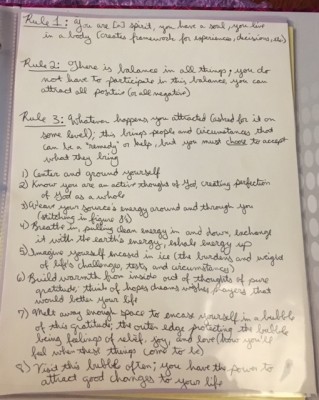 Rule 1: You are [in] spirit, you have a soul, you live
in a body (creates framework for experiences, decisions, etc)
Rule 2: There is balance in all things; you do
not have to participate in this balance you can
attract all positive (or all negative)
Rule 3: Whatever happens you attracted (asked for it on
some level); this brings people and circumstances that
can be a "remedy" or help, but you must choose to accept
what they bring
1) Center and ground yourself
2) Know you are an active thought of God, creating perfection
of God as a whole
3) Weave your source's energy around and through you
(stitching in figure 8s)
4) Breathe in, pulling clean energy in and down, exchange
it with the earth's energy, exhale energy up
5) Imagine yourself encased in ice (the burdens and weight
of life's challenges, tests, and circumstances)
6) Build warmth from inside out of thoughts of pure
gratitude, think of hopes dreams wishes prayers that
would better your life
7) Melt away enough space to encase yourself in a bubble
of this gratitude, the outer edge protecting the bubble
being feelings of relief, joy, and love (how you'll
feel when these things come to be)
8) Visit this bubble often; you have the power to
attract good changes to your life